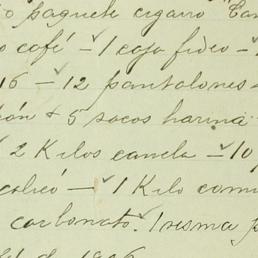 paquete cigarro
café — 1 caja fideo —
16 — 12 pantalones —
5 sacos harina
2 Kilos canela — 10
— 1 Kilo comi
carbonato. 1 resma p